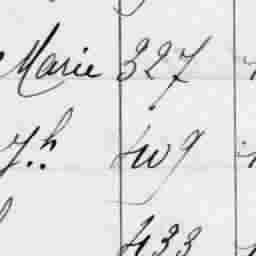 Marie 327
J.h 409
433